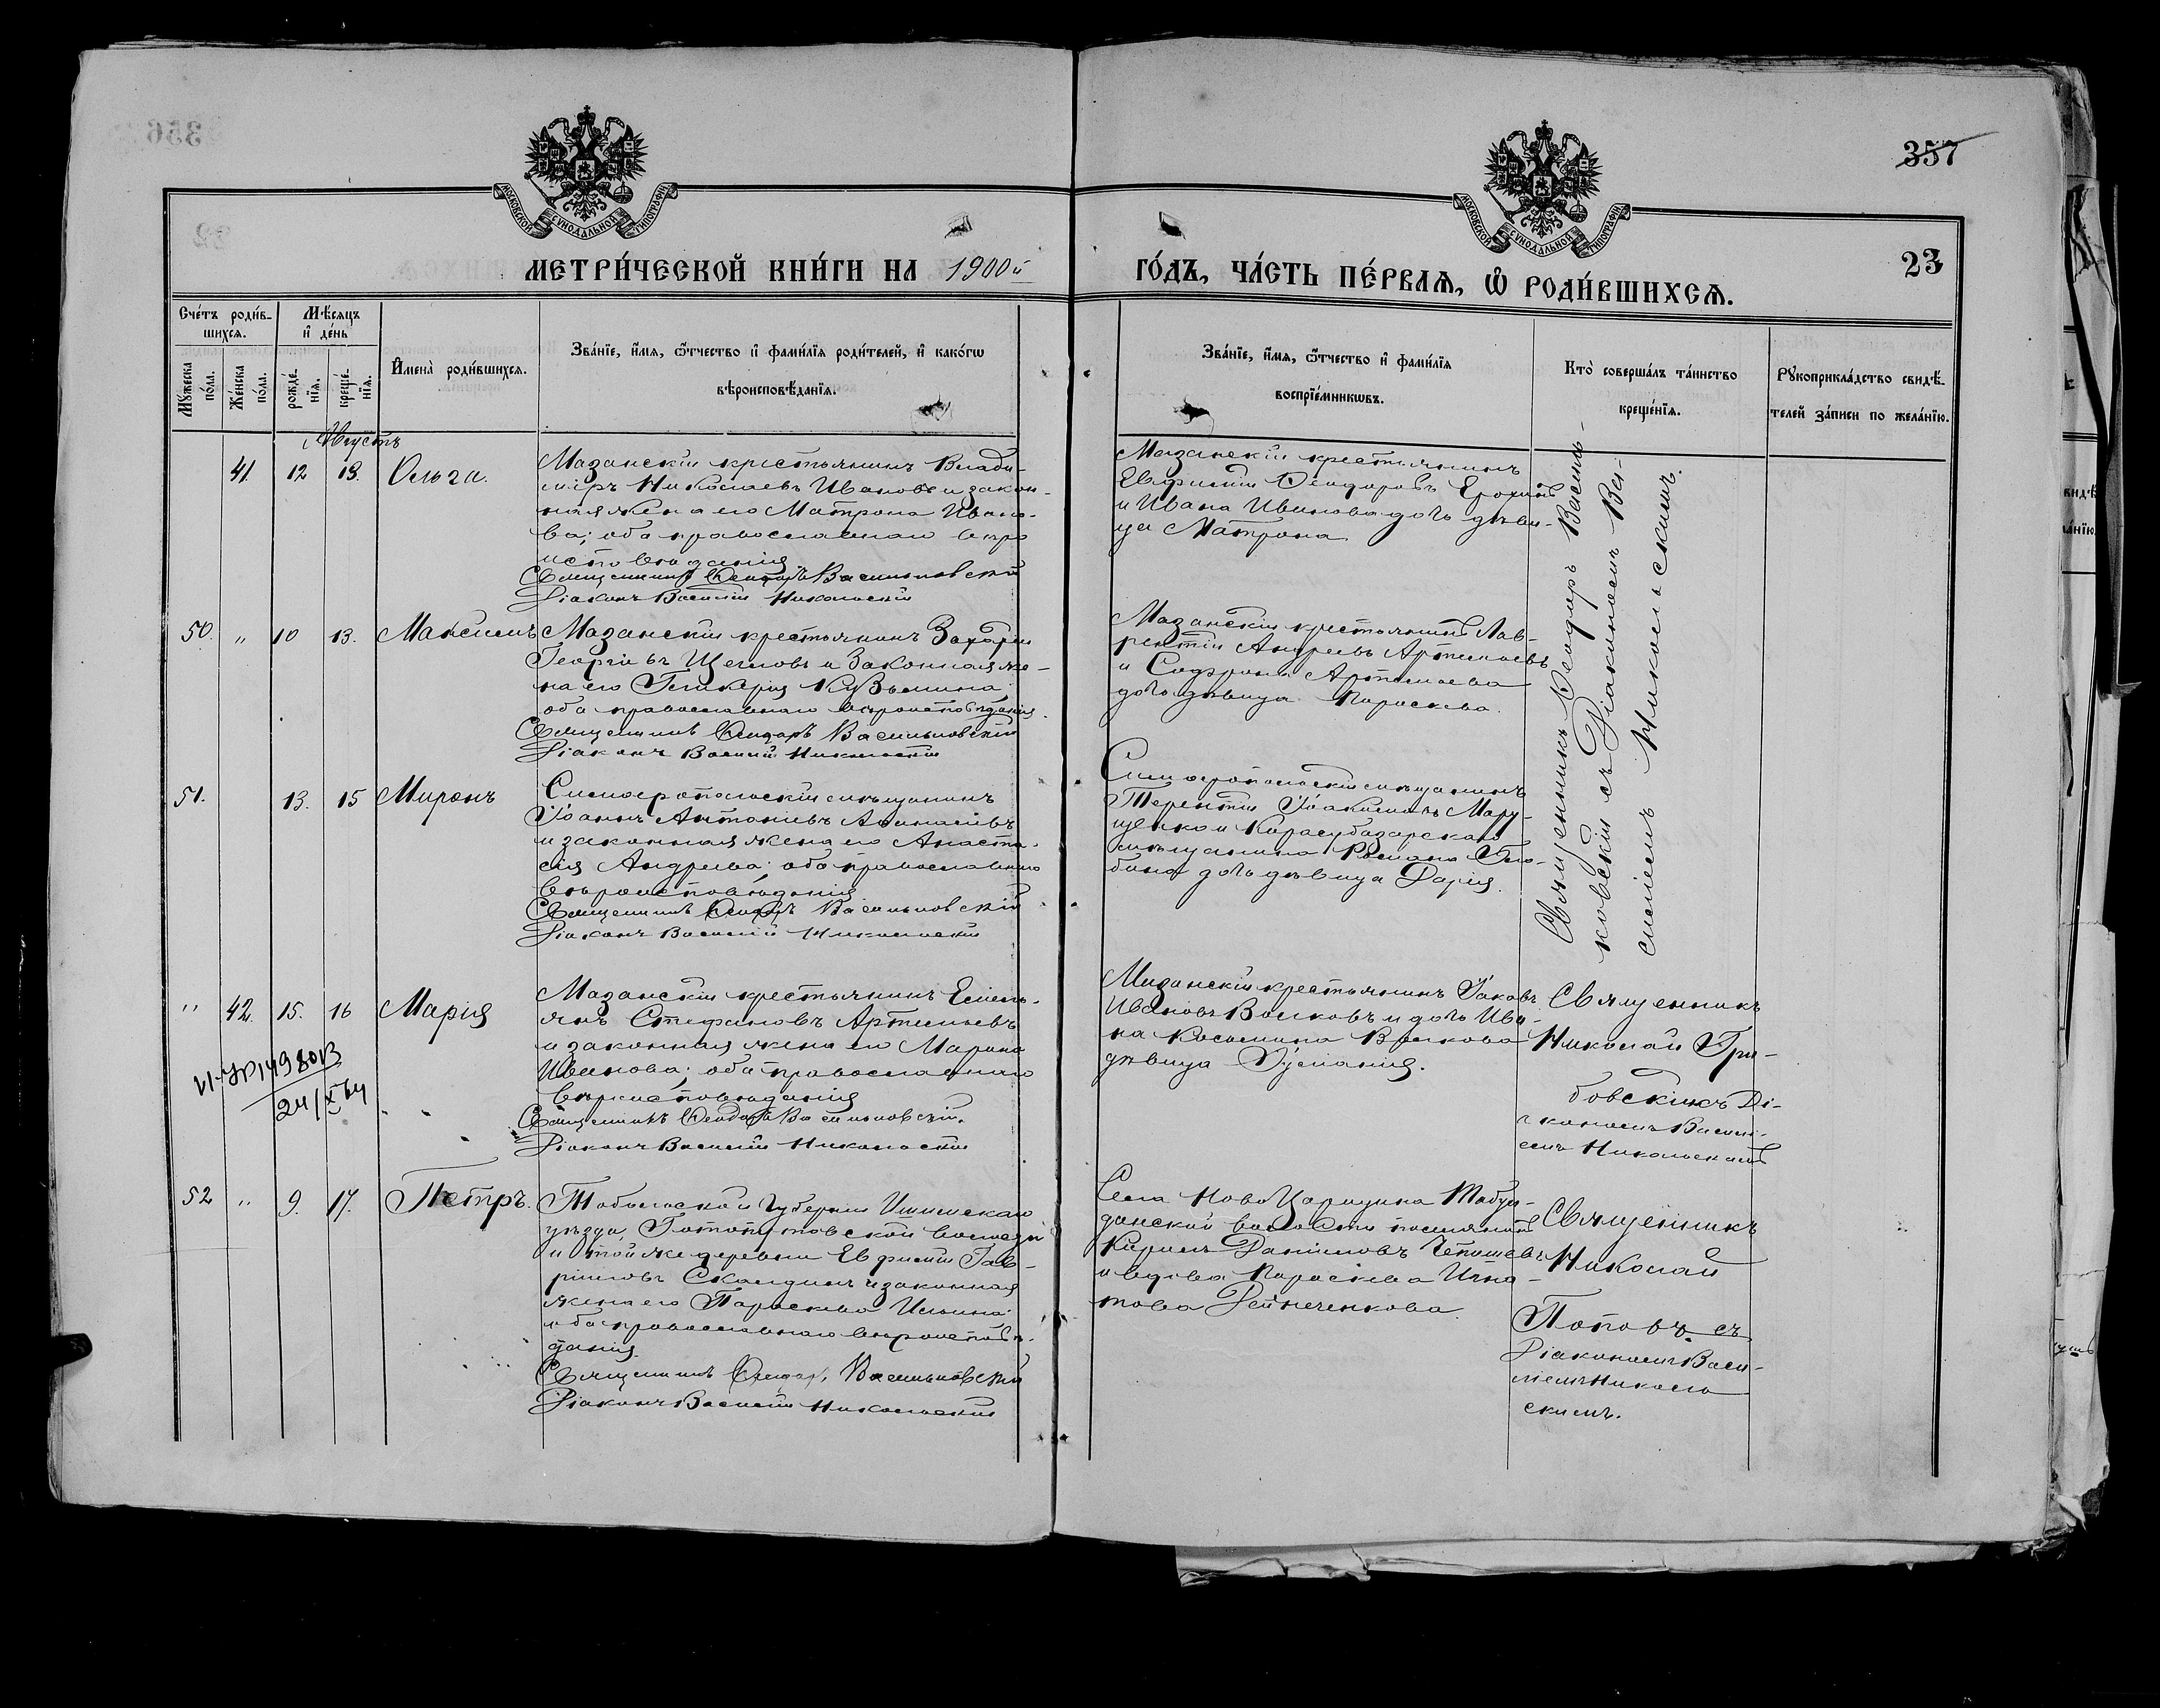 357
23
МОСКОВСКОЙ СѴНОДАЛЬНОЙ ТИПОГРАФІИ
МОСКОВСКОЙ СѴНОДАЛЬНОЙ ТИПОГРАФІИ
МЕТРИ́ЧЕСКОЙ КНИ́ГИ НА 1900й
ГО́ДЪ, ЧА́СТЬ ПЕ́РВАѦ, Ѽ РОДИ́ВШИХСѦ.
Сче́тъ роди́в-
шихсѧ.
Мꙋ́жеска по́ла.
Же́нска по́ла.
Мѣ́сѧцъ
и҆ де́нь
рожде́-нїѧ.
креще́-нїѧ.
И҆мена̀ роди́вшихсѧ.
Зва́нїе, и҆́мѧ, ѻ҆́тчество и҆ фами́лїѧ роди́телей, и҆ како́гѡ
вѣроисповѣ́данїѧ.
Зва́нїе, и҆́мѧ, ѻ҆́тчество и҆ фами́лїѧ
воспрїе́мникѡвъ.
Кто̀ соверша́лъ та́инство
креще́нїѧ.
Рꙋкоприкла́дство свидѣ́-
телей за́писи по жела́нїю.
Августъ
41. 12 13. Ольга.
Мазанскій крестьянинъ Влади-
міръ Николаевъ Ивановъ и закон-
ная жена его Матрона Ивано-
ва; оба православнаго вѣро
исповѣданія
Священникъ Ѳеодоръ Васильковскій
Діаконъ Василій Никольскій
Мазанскій крестьянинъ
Евфимій Ѳеодоровъ Ерохинъ
и Ивана Иванова дочь дѣви-
ца Матрона
Священникъ Ѳеодоръ Василь-
ковскій съ Діакономъ Ва-
силіемъ Никольскимъ.
50. " 10 13. Максимъ
Мазанскій крестьянинъ Захарій
Георгіевъ Щегловъ и законная же-
на его Гликерія Кузьмина
оба православнаго вѣроисповѣданія.
Священникъ Ѳеодоръ Васильковскій
Діаконъ Василій Никольскій
Мазанскій крестьянинъ Лав-
рентій Андреевъ Артемьевъ
и Софрона Артемьева
дочь дѣвица Параскева.
51. 13. 15 Миронъ
Симферопольскій мѣщанинъ
Іоаннъ Антоніевъ Аѳанасіевъ
и законная жена его Анаста-
сія Андреева; оба православнаго
вѣроисповѣданія
Священникъ Ѳеодоръ Васильковскій
Діаконъ Василій Никольскій
Симферопольскій мѣщанинъ
Терентій Іоакимовъ Мару-
щенко и Карасубазарскаго
мѣщанина Романа
дочь дѣвица Дарія.
" 42. 15. 16 Марія
Мазанскій крестьянинъ Емель-
янъ Стефановъ Артемьевъ
и законная жена его Марина
Иванова; оба православнаго
вѣроисповѣданія
Священникъ Ѳеодоръ Васильковскій.
Діаконъ Василій Никольскій
Мазанскій крестьянинъ Іаковъ
Ивановъ Волковъ и дочь Ива-
на Косьмина Волкова
дѣвица Іуліанія.
Священникъ
Николай Гри-
бовскій съ Ді-
акономъ Василі-
емъ Никольскимъ
52 " 9. 17. Петръ.
Тобольской губерніи Ишимскаго
уѣзда, Готопутовской волости
и той же деревни Евфимій Гав-
ріиловъ Скалдинъ и законная
жена его Параскева Ильина;
оба православнаго вѣроисповѣ-
данія.
Священникъ Ѳеодоръ Васильковскій
Діаконъ Василій Никольскій
Села НовоЦарицына Табул-
данской волости поселянинъ
Кириллъ Даніиловъ
и вдова Параскева Игна-
това
Священникъ
Николай
Поповъ съ
Діакономъ Васи-
ліемъ Николь
скимъ.